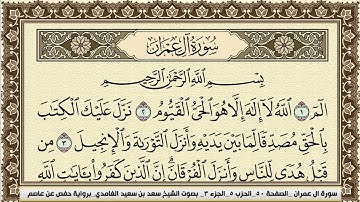 سُورَةُ آلِ عِمْرَانَ
بِسْمِ اللَّهِ الرَّحْمَٰنِ الرَّحِيمِ
الٓمٓ ١ اللَّهُ لَا إِلَٰهَ إِلَّا هُوَ الْحَيُّ الْقَيُّومُ ٢ نَزَّلَ عَلَيْكَ الْكِتَابَ
بِالْحَقِّ مُصَدِّقًا لِّمَا بَيْنَ يَدَيْهِ وَأَنزَلَ التَّوْرَاةَ وَالْإِنجِيلَ ٣ مِن
قَبْلُ هُدًى لِّلنَّاسِ وَأَنزَلَ الْفُرْقَانَ إِنَّ الَّذِينَ كَفَرُوا بِآيَاتِ اللَّهِ
سورة ال عمران _ الصفحة ٥٠ _ الحزب ٥ _ الجزء ٣ _ بصوت الشيخ سعد بن سعيد الغامدي _ برواية حفص عن عاصم